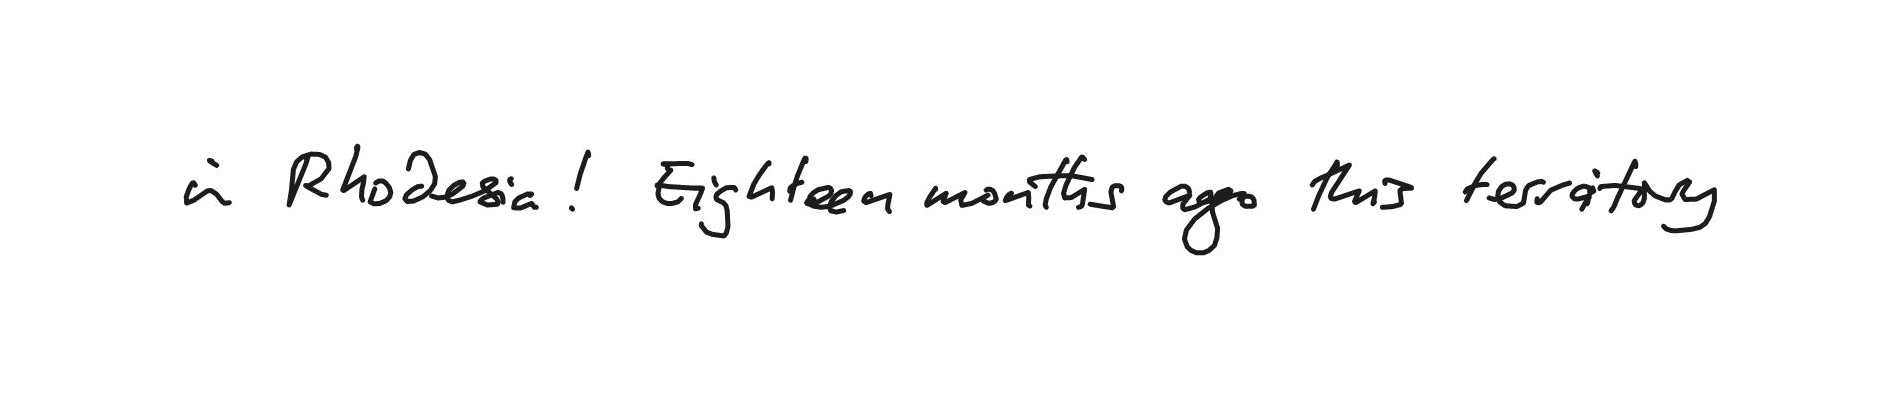 in Rhodesia! Eighteen months ago this territory